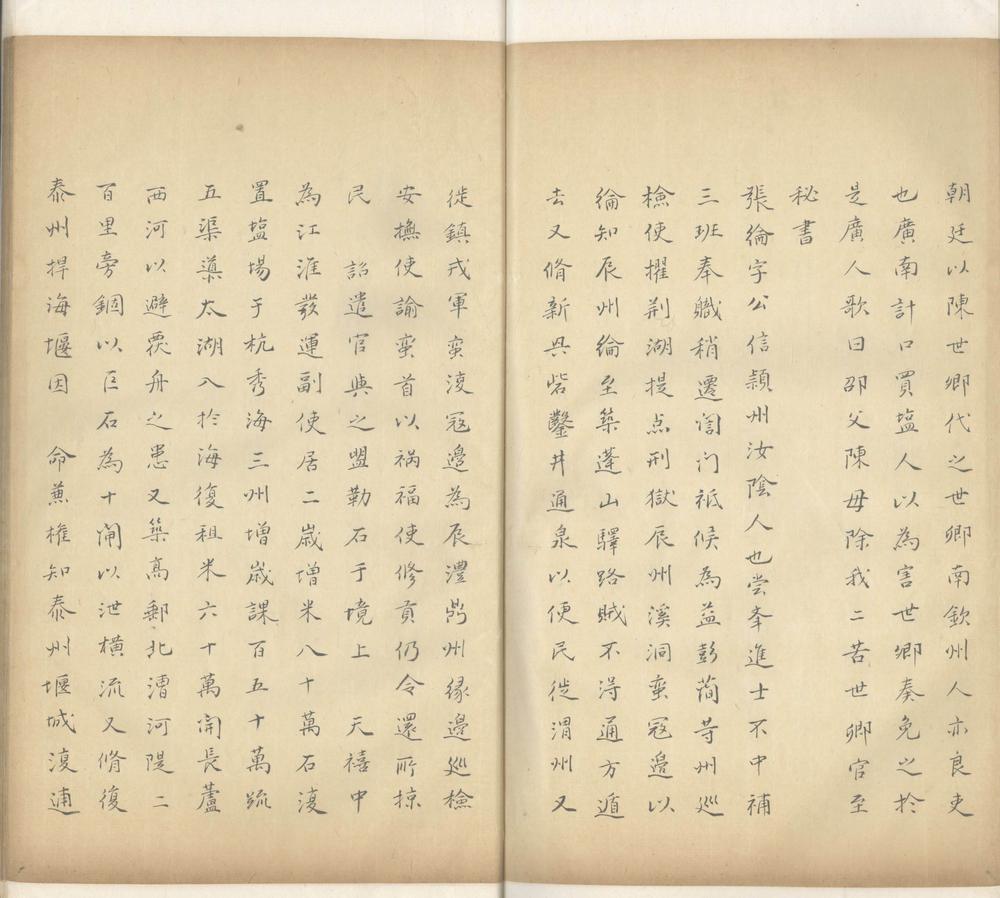 朝廷以陳世卿代之世卿南欽州人亦良吏
也廣南計口買塩人以為害世卿奏免之於
是廣人歌曰邵父陳母除我二苦世卿官至
秘書
張綸字公信頴州汝陰人也尝夆進士不中補
三班奉職稍遷閤门祗候為益彭蕳䓁州巡
檢使擢荆湖提点刑獄辰州溪洞蛮冦邉以
綸知辰州綸至築蓬山驛路賊不淂通方遁
去又脩新兴砦鑿井通泉以便民徙渭州又
徙鎮戎軍蛮復冦邉為辰澧鼎州緣邉巡檢
安撫使諭蛮首以禍福使修貢仍令還所掠
民 詔遣官與之盟勒石于境上 天禧中
為江淮發運副使居二歲增米八十萬石復
置塩場于杭秀海三州增歲課百五十萬䟽
五渠導太湖入於海復租米六十萬開長蘆
西河以避覆舟之患又築髙郵北漕河隄二
百里旁錮以巨石為十闸以泄橫流又脩復
泰州捍海堰因 命兼權知泰州堰城復逋